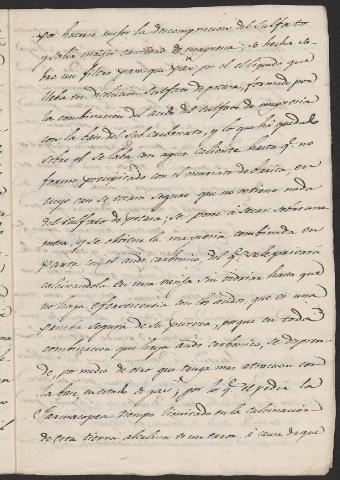 por hacerse mejor la descomposicion del Sulfato
y salir mayor cantidad de magnesia; se hecha so-
bre un filtro para que pase por el el liquido que
lleba en disolucion Sulfato de potasa, formado por
la combinacion del acido del sulfato de magnesia
con la base del Subcarbonato, y lo que ha quedado
sobre el se laba con agua caliente hasta q.e no
forme precipitado con el muriato de barita, en
cuyo caso se estara seguro que no retiene nada
del sulfato de potasa; se pone á secar sobre
y se obtiene la magnesia combinada en
parte con el acido carbonico, del q.e se le privará
calcinandola en una basija sin bidriar hasta que
no haga efervescencia con los acidos, que es una
prueba segura de su pureza, porque en toda
combinacion que haya acido carbonico, se despren-
de, por medio de otro que tenga mas atraccion con
la base, en estado de gas; por lo q.e el pedir la
Farmacopea tiempo limitado en la calcinacion
de esta tierra alcalina es un error, á causa de que